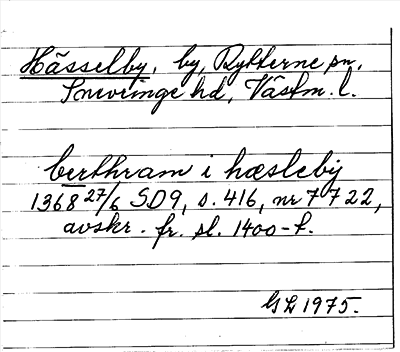 Hässelby, by, Rytterne sn,
Snevringe hd, Västm. l.
berthram i hæsleby
1368 27/6 SD9, s. 416, nr 7722,
avskr. fr. sl. 1400-t.
GL 1975.